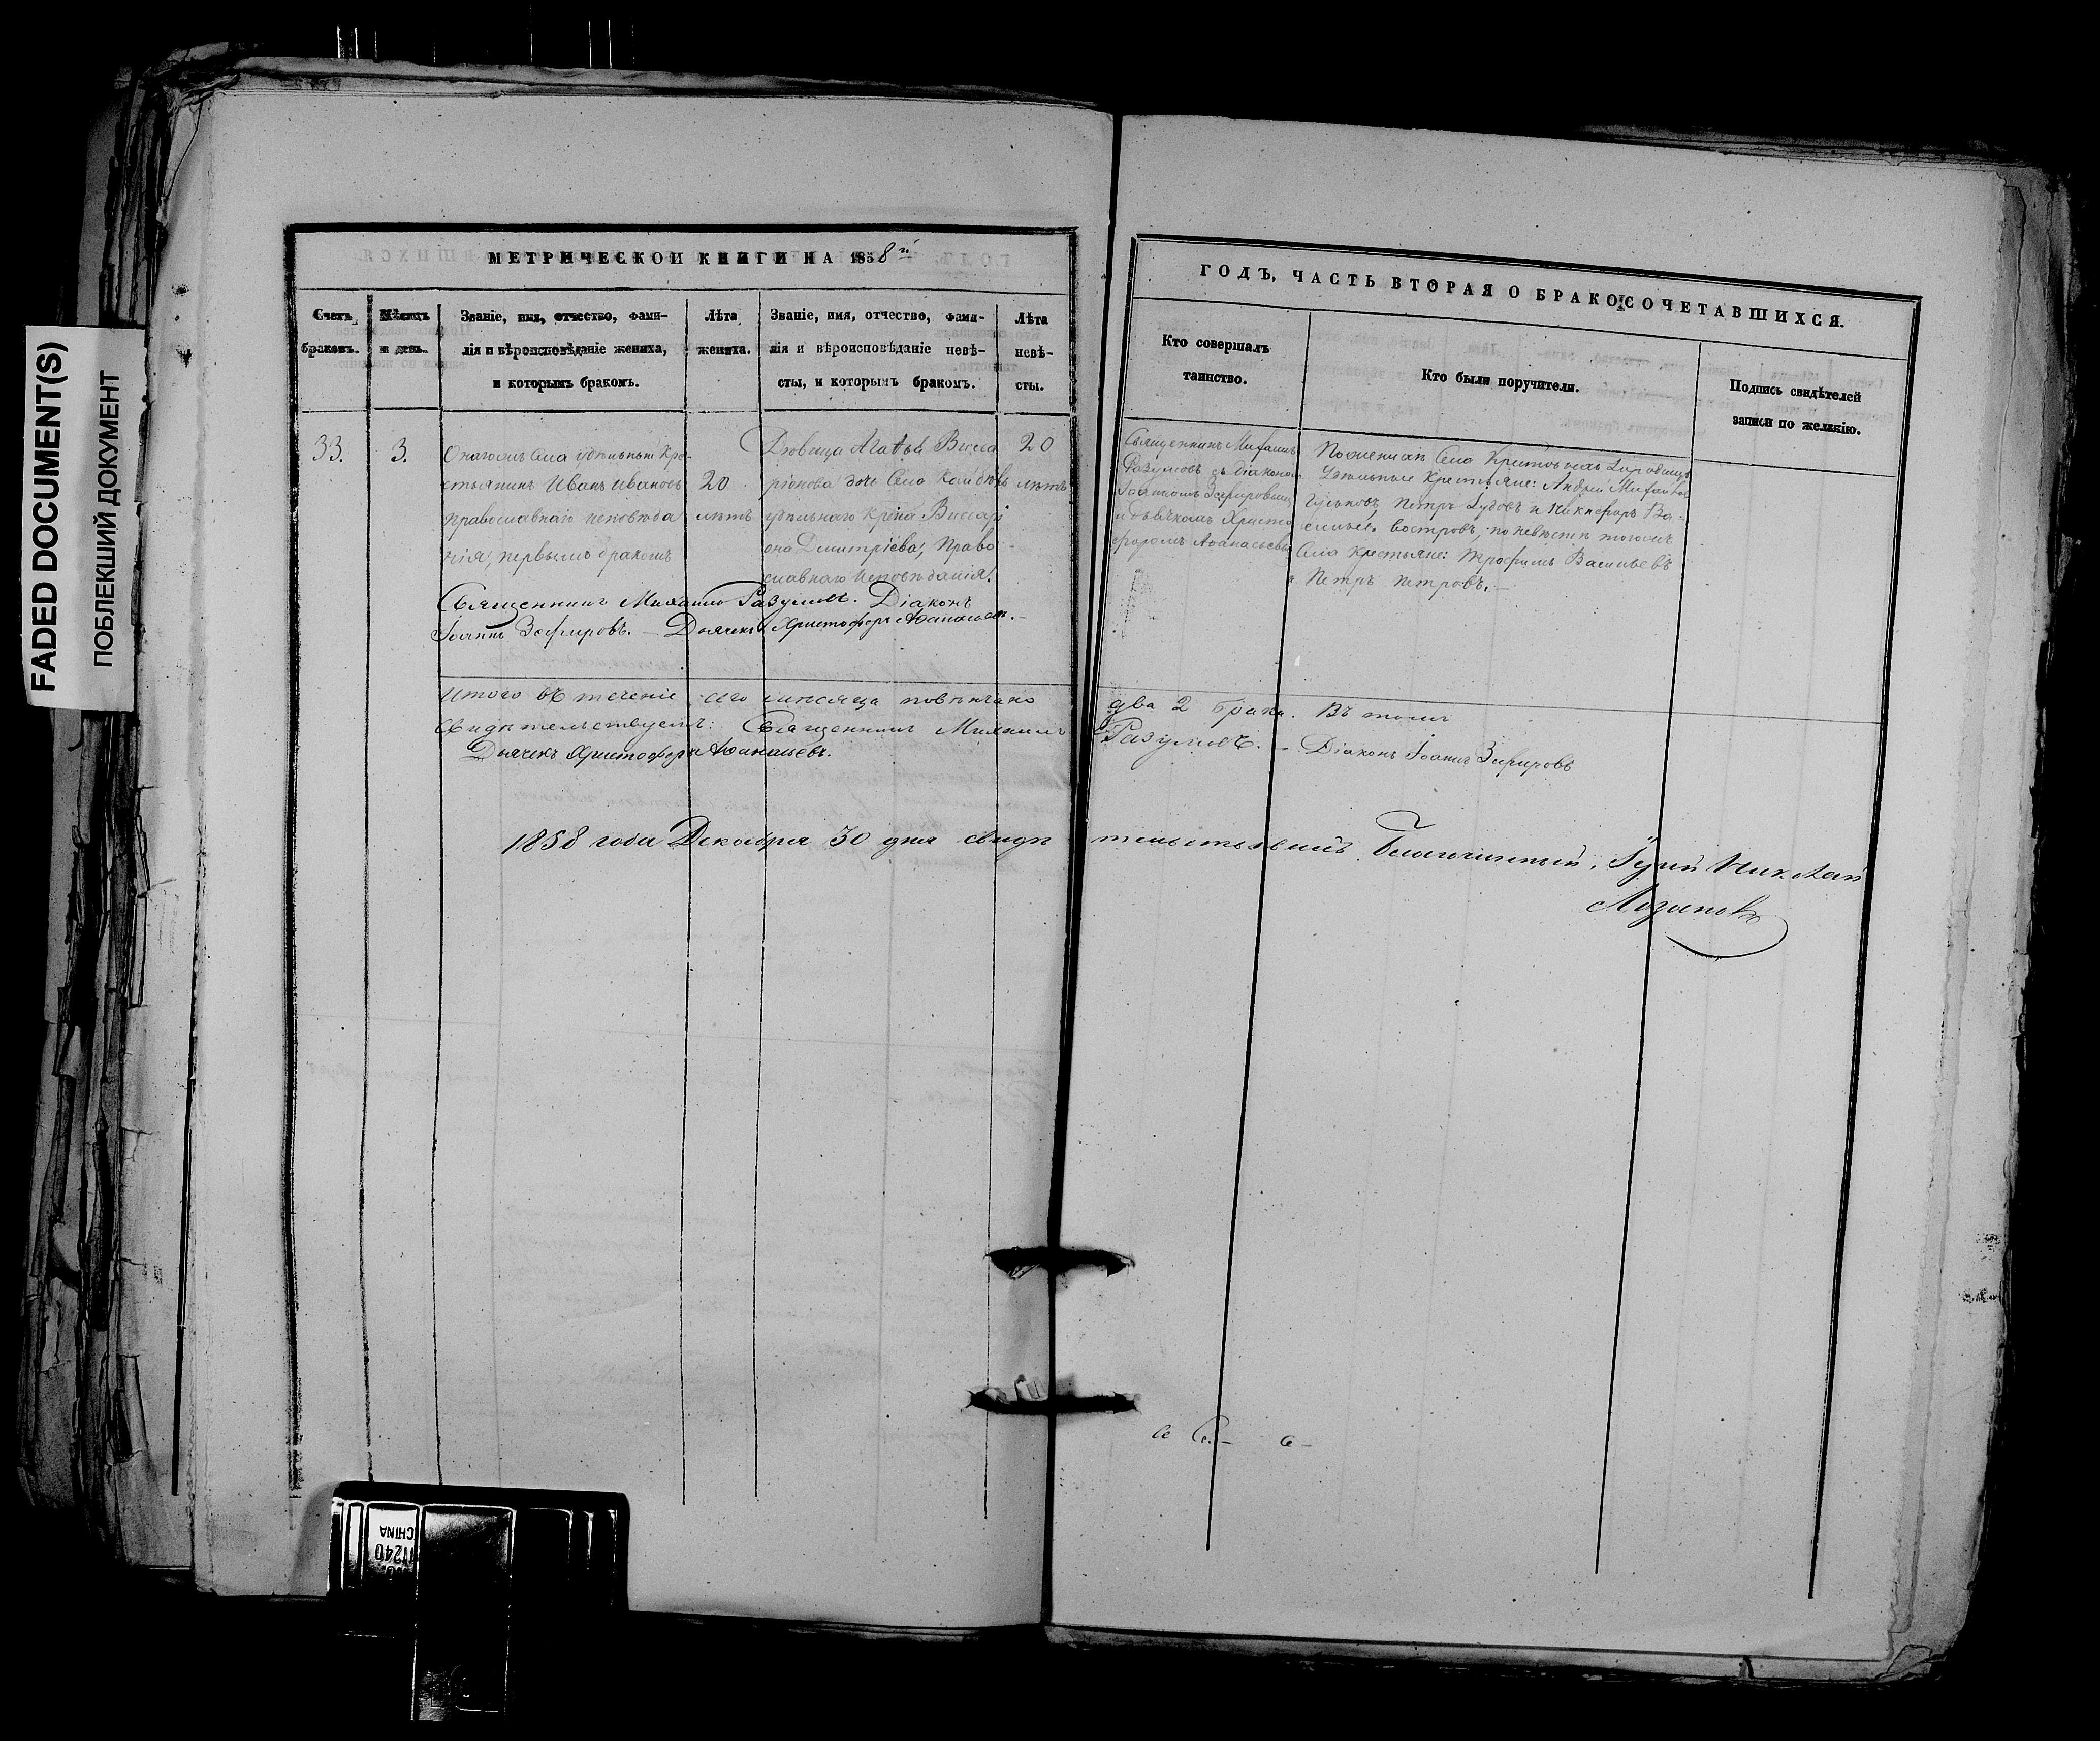 FADED DOCUMENT(S)
ПОБЛЕКШИЙ ДОКУМЕНТ
МЕТРИЧЕСКОЙ КНИГИ НА 1858й
Счетъ браковъ.
Мѣсяцъ и день.
Званіе, имя, отчество, фами-
лія и вѣроисповѣданіе жениха,
и которымъ бракомъ.
Лѣта
жениха.
Званіе, имя, отчество, фами-
лія и вѣроисповѣданіе невѣ-
сты, и которымъ бракомъ.
Лѣта
невѣ-
сты.
33.
3.
Онагожъ Села удѣльный Кре-
стьянинъ Иванъ Ивановъ
православнаго исповѣда
нія, первымъ бракомъ
20
лѣтъ
Дѣвица Агаѳья Висса
ріонова дочь Села
удѣльнаго Крⷭ҇на Виссарі
она Димитріева, Право
славнаго исповѣданія.
20
лѣтъ
Священникъ Михаилъ Разумовъ. Діаконъ
Іоаннъ Зефировъ. — Дьячекъ Христофоръ Аѳанасьевъ. —
Итого въ теченіе сего мѣсяца повѣнчано
Свидѣтельствуемъ: Священникъ Михаилъ
Дьячекъ Христофоръ Аѳанасьевъ.
1858 года Декабря 30 дня свидѣ
ГОДЪ, ЧАСТЬ ВТОРАЯ О БРАКОСОЧЕТАВШИХСЯ.
Кто совершалъ
таинство.
Кто были поручители.
Подпись свидѣтелей
записи по желанію.
Священникъ Михаилъ
Разумовъ съ діакономъ
Іоанномъ Зефировымъ
и дьячкомъ Христо
форомъ Аѳанасьевымъ
По женихѣ Села
Удѣльные Крестьяне: Андрей Михайловъ
Гуськовъ, Петръ и Никифоръ Ва-
сильевъ Востровъ; по невѣстѣ тогожъ
Села Крестьяне: Трофимъ Васильевъ
и Петръ Петровъ. —
два 2 брака. Въ томъ
Разумовъ. — Діаконъ Іоаннъ Зефировъ
тельствовалъ Благочинный, Іерей Николай